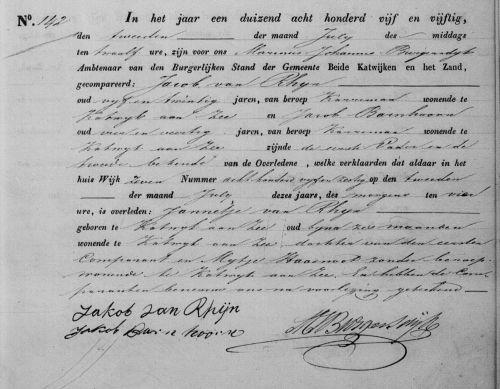 Nº. 142 In het jaar een duizend acht honderd vijf en vijftig,
den tweeden der maand July des middags
ten twaalf ure, zijn voor ons Marinus Johannes
Ambtenaar van den Burgerlijken Stand der Gemeente Beide Katwijken en het Zand,
gecompareerd: Jacob van Rhyn
oud vyf en twintig jaren, van beroep wonende te
Katwyk aan Zee en Jacob
oud vier en veertig jaren, van beroep wonende te
Katwyk aan Zee zijnde de eerste Vader en de
tweede bekende van de Overledene, welke verklaarden dat aldaar in het
huis Wijk Zeven Nummer acht honderd vyf en zestig op den tweeden
der maand July dezes jaars, des morgens ten vier
ure, is overleden: Jannetje van Rhyn
geboren te Katwyk aan Zee oud byna zes maanden
wonende te Katwyk aan Zee dochter van den eersten
Comparant en Mytje Haasnoot zonder beroep
wonende te Katwyk aan Zee. En hebben de Com-
paranten benevens ons na voorlezing geteekend
Jakob van Rhijn
Jakob